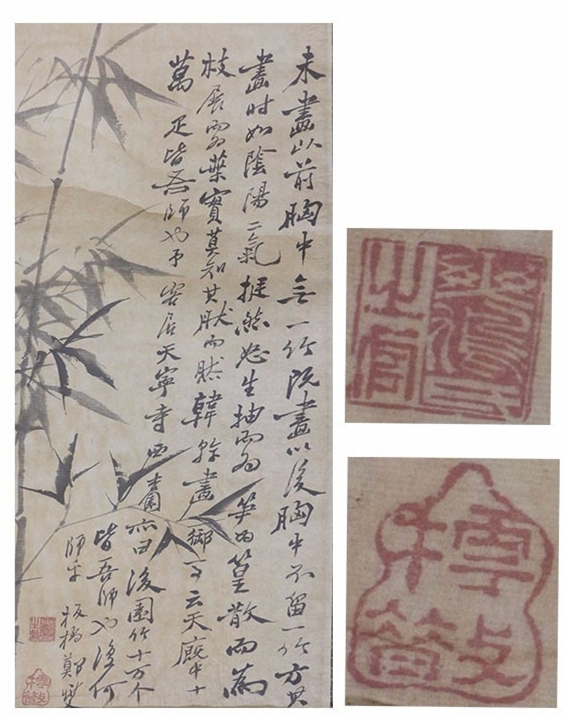 未畫以前胸中無一竹既畫以後胸中不留一竹方其
畫时如陰陽二氣挺然怒生抽而為笋為篁散而為
枝展而為葉實莫知其肰而肰韓幹畫御馬云天廐中十
萬疋皆吾師也予客居天寧寺西園亦曰後園竹十万个
皆吾師也復何
師乎 板橋鄭燮
爽鳩氏
之官